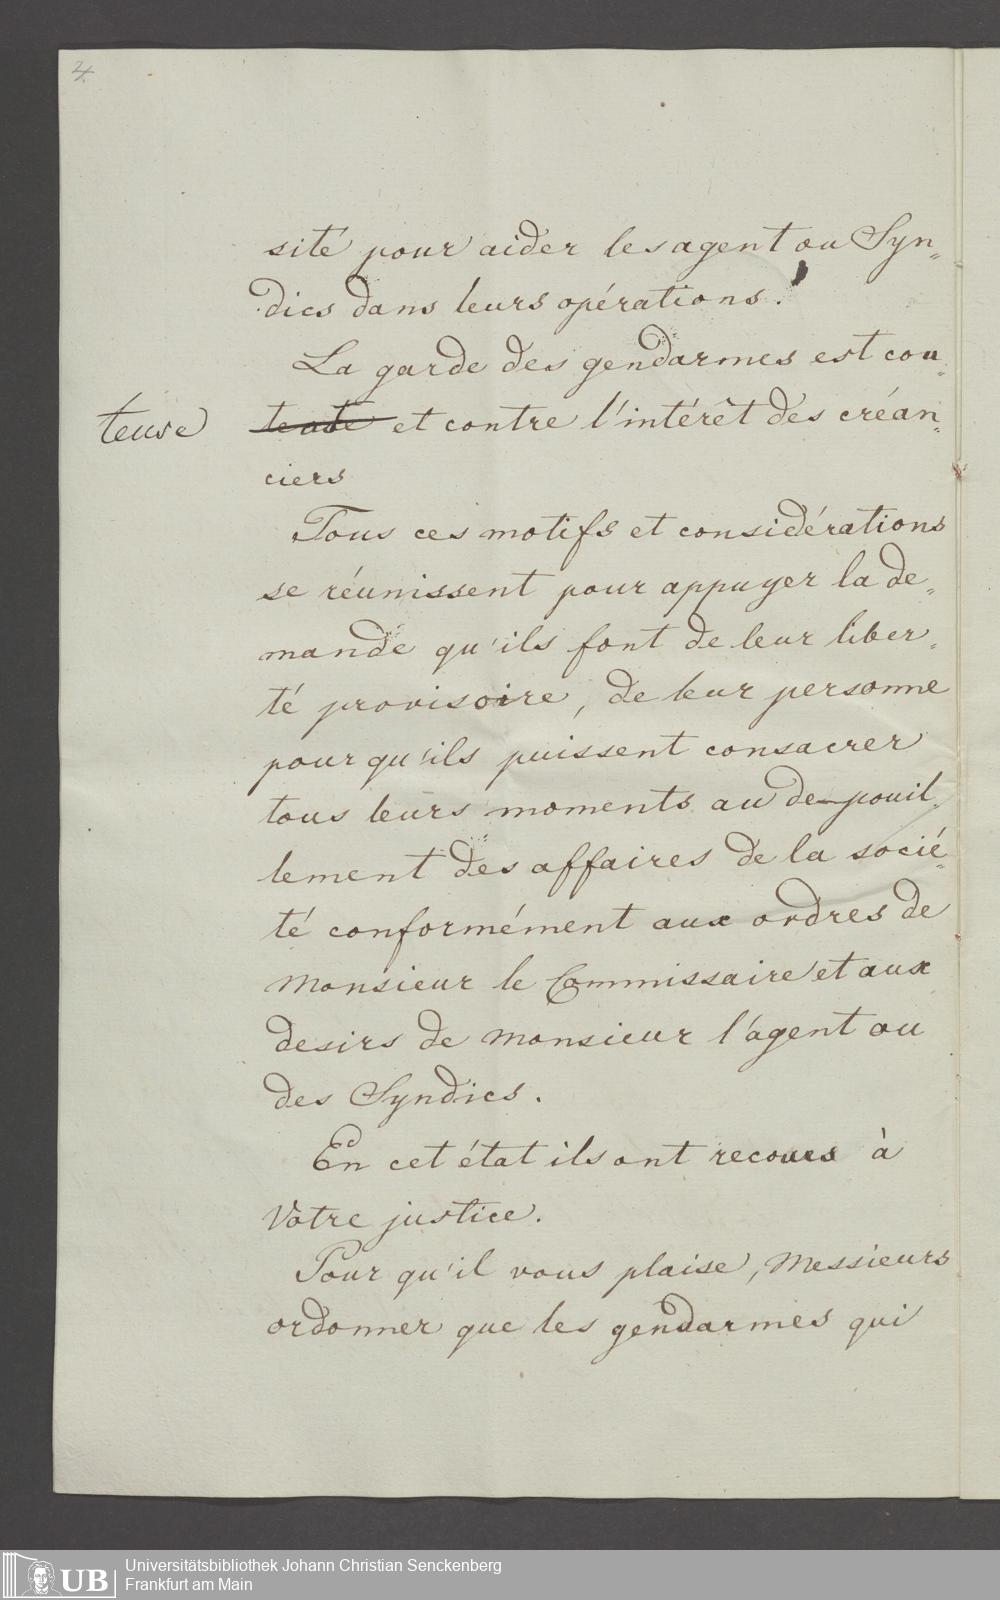 4.
sité pour aider les agent ou Syn„
dics dans leurs opérations.
La garde des gendarmes est cou„
teuse
et contre l'intérêt des créan„
ciers
Tous ces motifs et considérations
se réunissent pour appuyer la de„
mande qu'ils font de leur liber„
té provisoire, de leur personne
pour qu'ils puissent consacrer
tous leurs moments au de-pouil„
lement des affaires de la socié„
té conformément aux ordres de
Monsieur le Commissaire et aux
desirs de Monsieur l'agent ou
des Syndics.
En cet état ils ont recours à
Votre justice.
Pour qu'il vous plaise, Messieurs
ordonner que les gendarmes qui
UB
Universitätsbibliothek Johann Christian Senckenberg
Frankfurt am Main